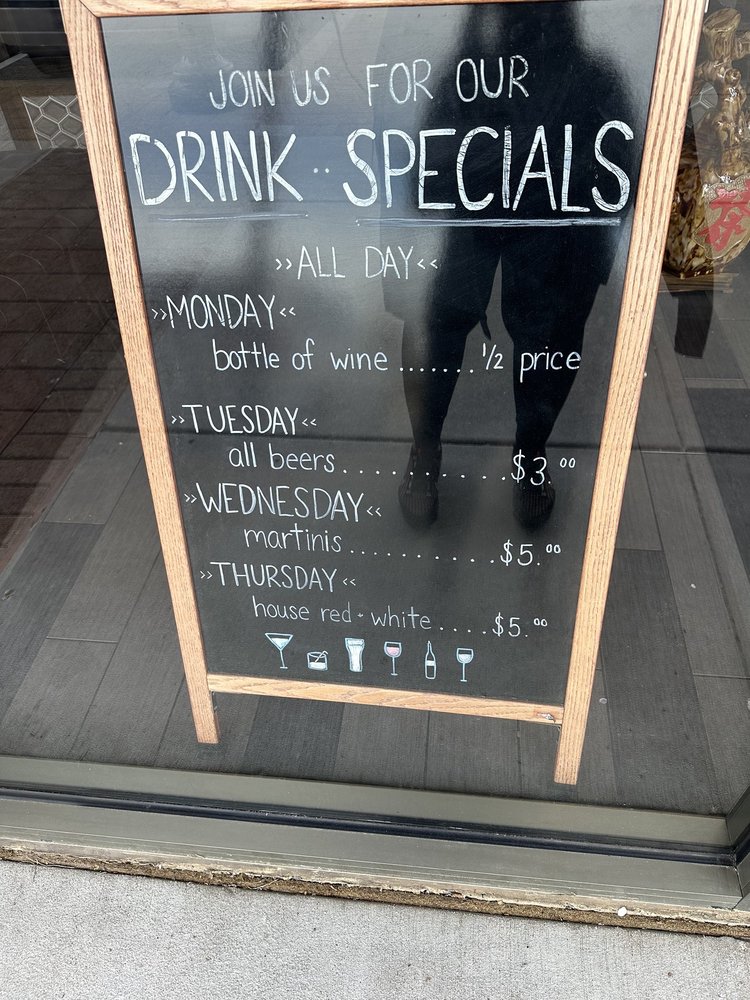 JOIN US FOR OUR
DRINK·· SPECIALS
>>ALL DAY<<
>>MONDAY<<
bottle of wine.......1/2 price
>>TUESDAY<<
all beers............$3.00
>>WEDNESDAY<<
martinis............$5.00
>>THURSDAY<<
house red + white....$5.00